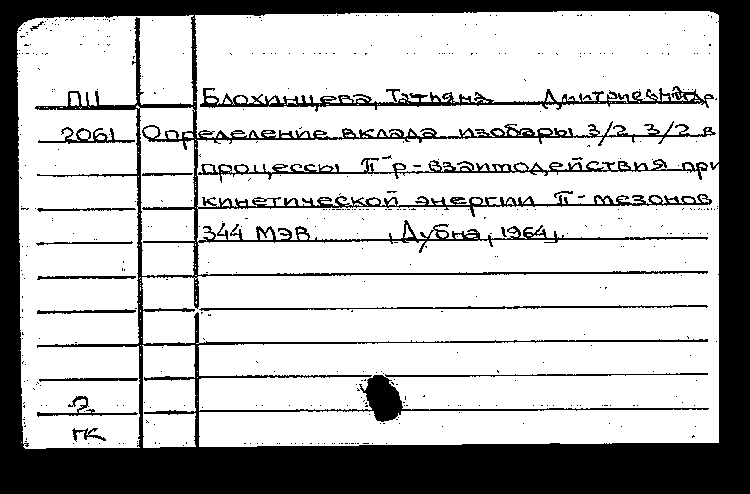 П11 Блохинцева, Татьяна Дмитриевна и др.
2061 Определение вклада изобары 3/2, 3/2 в
процессы π⁻p-взаимодействия при
кинетической энергии π-мезонов
344 МЭВ. [Дубна, 1964].
2
ГК